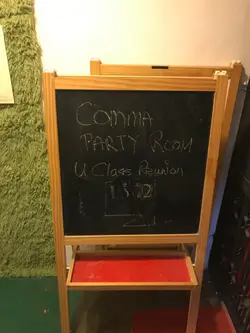 COMMA
PARTY ROOM
U Class Reunion